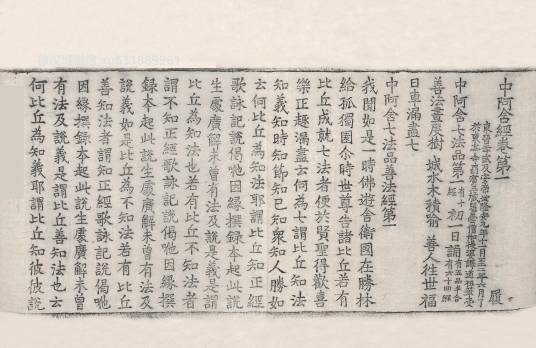 中阿含經卷第一
履
東晉孝武及安帝世隆安元年十一月至二年六月了
於東亭寺罽賓三藏瞿曇僧伽提婆譯道祖筆受
中阿含七法品第一 有十經 初一日誦 有五品半合有六十四經
善法晝度樹 城水木積喻 善人往世福
日車漏盡七
中阿含七法品善法經第一
我聞如是一時佛遊舍衛國在勝林
給孤獨園尒時世尊告諸比丘若有
比丘成就七法者便於賢聖得歡喜
樂正趣漏盡云何為七謂比丘知法
知義知時知節知己知衆知人勝如
云何比丘為知法耶謂比丘知正經
歌詠記說偈咃因緣撰録本起此說
生處廣解未曾有法及說義是謂
比丘為知法也若有比丘不知法者
謂不知正經歌詠記說偈咃因緣撰
録本起此說生處廣解未曾有法及
說義如是比丘為不知法若有比丘
善知法者謂知正經歌詠記說偈咃
因緣撰録本起此說生處廣解未曾
有法及說義是謂比丘善知法也云
何比丘為知義耶謂比丘知彼彼說